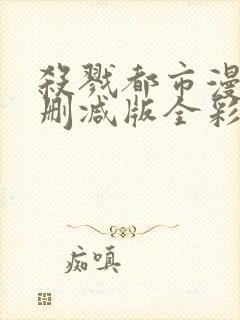 殺戮都市漫
删减版全彩
痴嗔